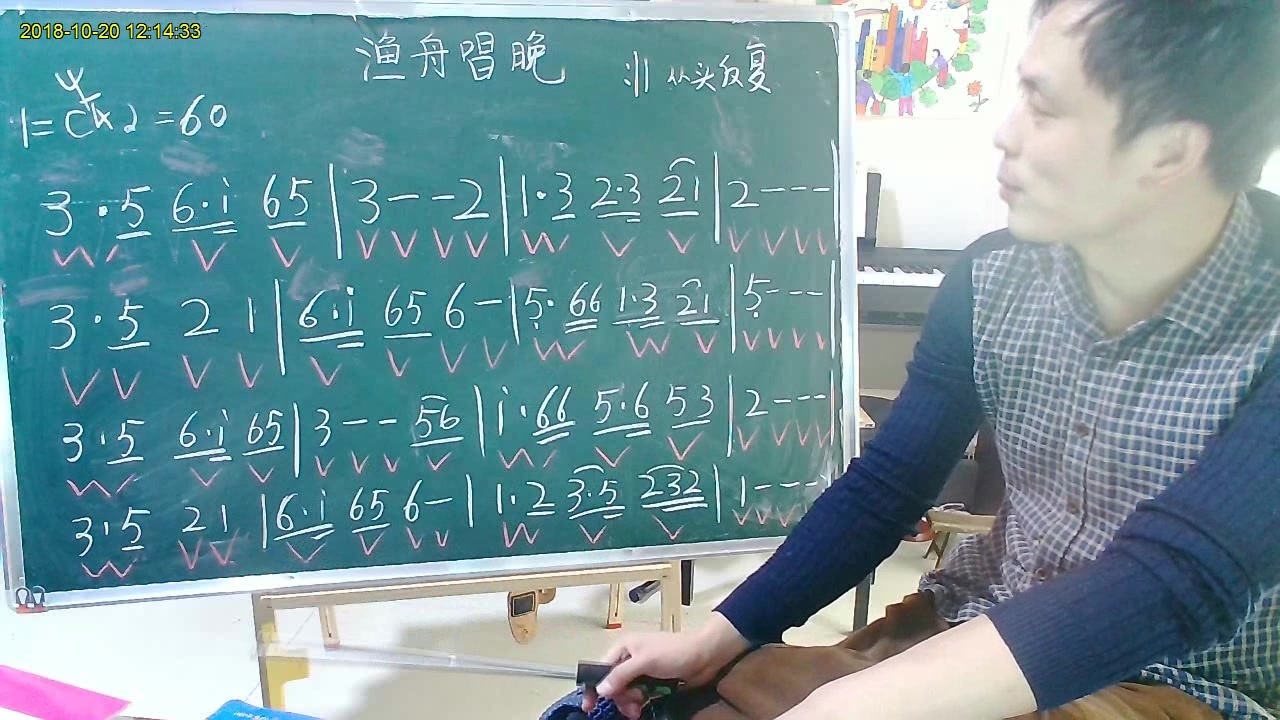 2018-10-20 12:14:33
渔舟唱晚
:|| 从头反复
1=C 4/4 ♩=60
3·5 6·i 65 | 3--2 | 1·3 2·3 21 | 2---
3·5 2 1 | 6·i 65 6- | 5·66 1·3 21 | 5---
3·5 6·i 65 | 3--56 | i·66 5·6 53 | 2---
3·5 21 | 6·i 65 6- | 1·2 3·5 232 | 1---